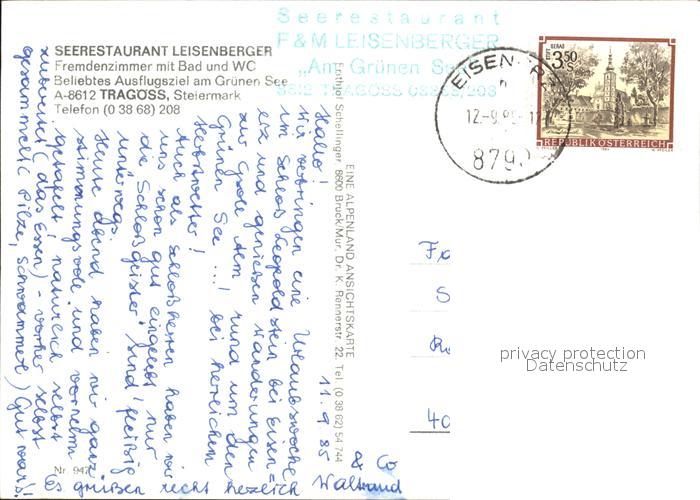 SEERESTAURANT LEISENBERGER
Fremdenzimmer mit Bad und WC
Beliebtes Ausflugsziel am Grünen See
A-8612 TRAGÖSS, Steiermark
Telefon (0 38 68) 208
Seerestaurant
F & M LEISENBERGER
„Am Grünen See
8612 TRAGÖSS 03868/208
EISEN
12.-9.85-12
8790
GERAS
S 3.50
REPUBLIK ÖSTERREICH
EINE ALPENLAND ANSICHTSKARTE
Schellinger 8600 Bruck/Mur, Dr. K. Rennerstr. 22, Tel. (0 38 62) 54 744
11.9.85
Hallo!
Wir verbringen eine Urlaubswoche
im Schloß Leopoldstein bei Eisen=
erz und genießen Wanderungen
zur Gsoll Alm rund um den
Grünen See ...! bei herrlichem
Herbstwetter!
Auch als Schloßherren haben wir
uns schon gut eingelebt, nur
die „Schloßgeister" sind fleißig
unterwegs.
Heute abend haben wir ganz
stimmungsvoll und vornehm
getafelt, natürlich selbst
zubereitet (das Essen) - vorher selbst
gesammelt (Pilze, Schwammerl) Gut war's!
Es grüßen recht herzlich Waltraud
& Co
Nr. 947
Fa
S
40
privacy protection
Datenschutz